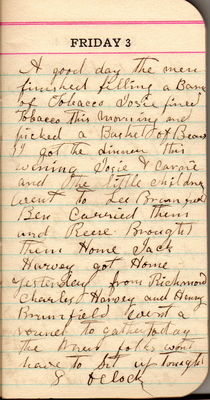 FRIDAY 3
A good day the men
finished filling a Barn
of Tobacco Josie fired
Tobacco this morning and
picked a Bushel of Beans
I got the dinner this
evining Josie & Carrie
and the little children
went to Lee Brumfield
Ben Carried them
and Reese Brought
them Home Jack
Harvey got Home
yesterday from Richmond
Charles Harvey and Henry
Brumfield went a
round to gather today
the men folks wont
have to sit up tonight
8 oclock